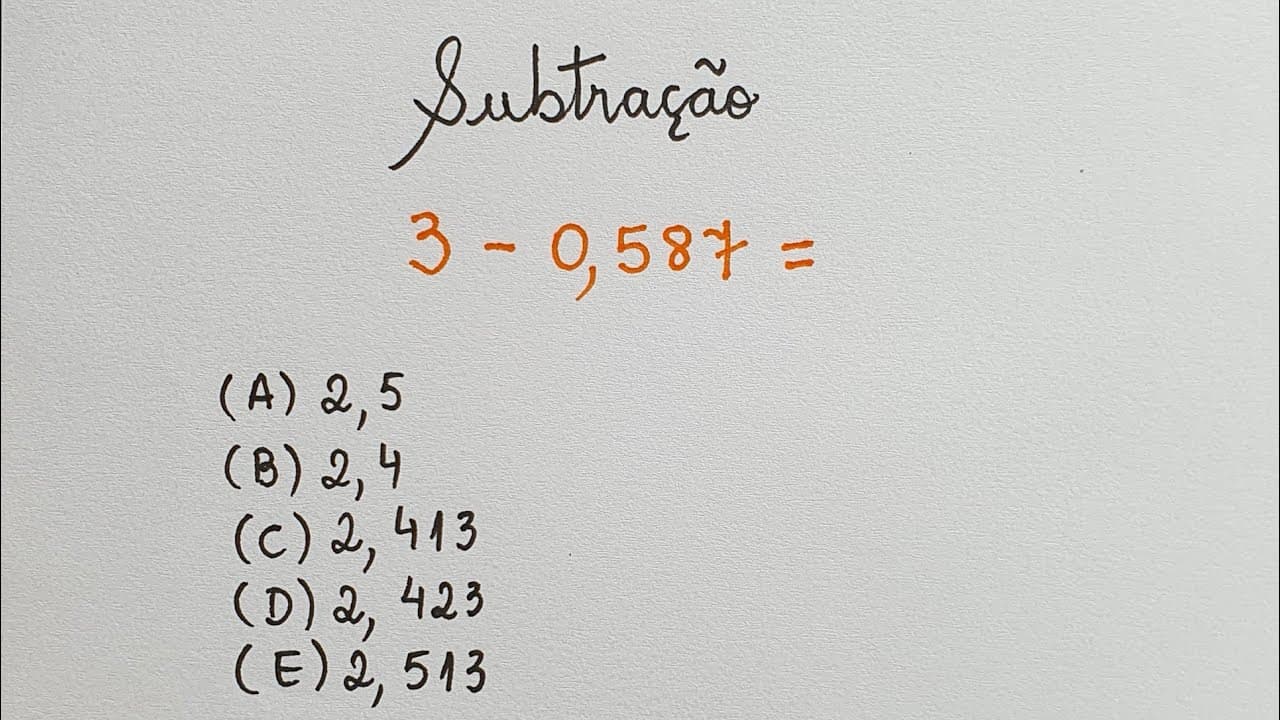 Subtração
3 - 0,587 =
(A) 2,5
(B) 2,4
(C) 2,413
(D) 2,423
(E) 2,513